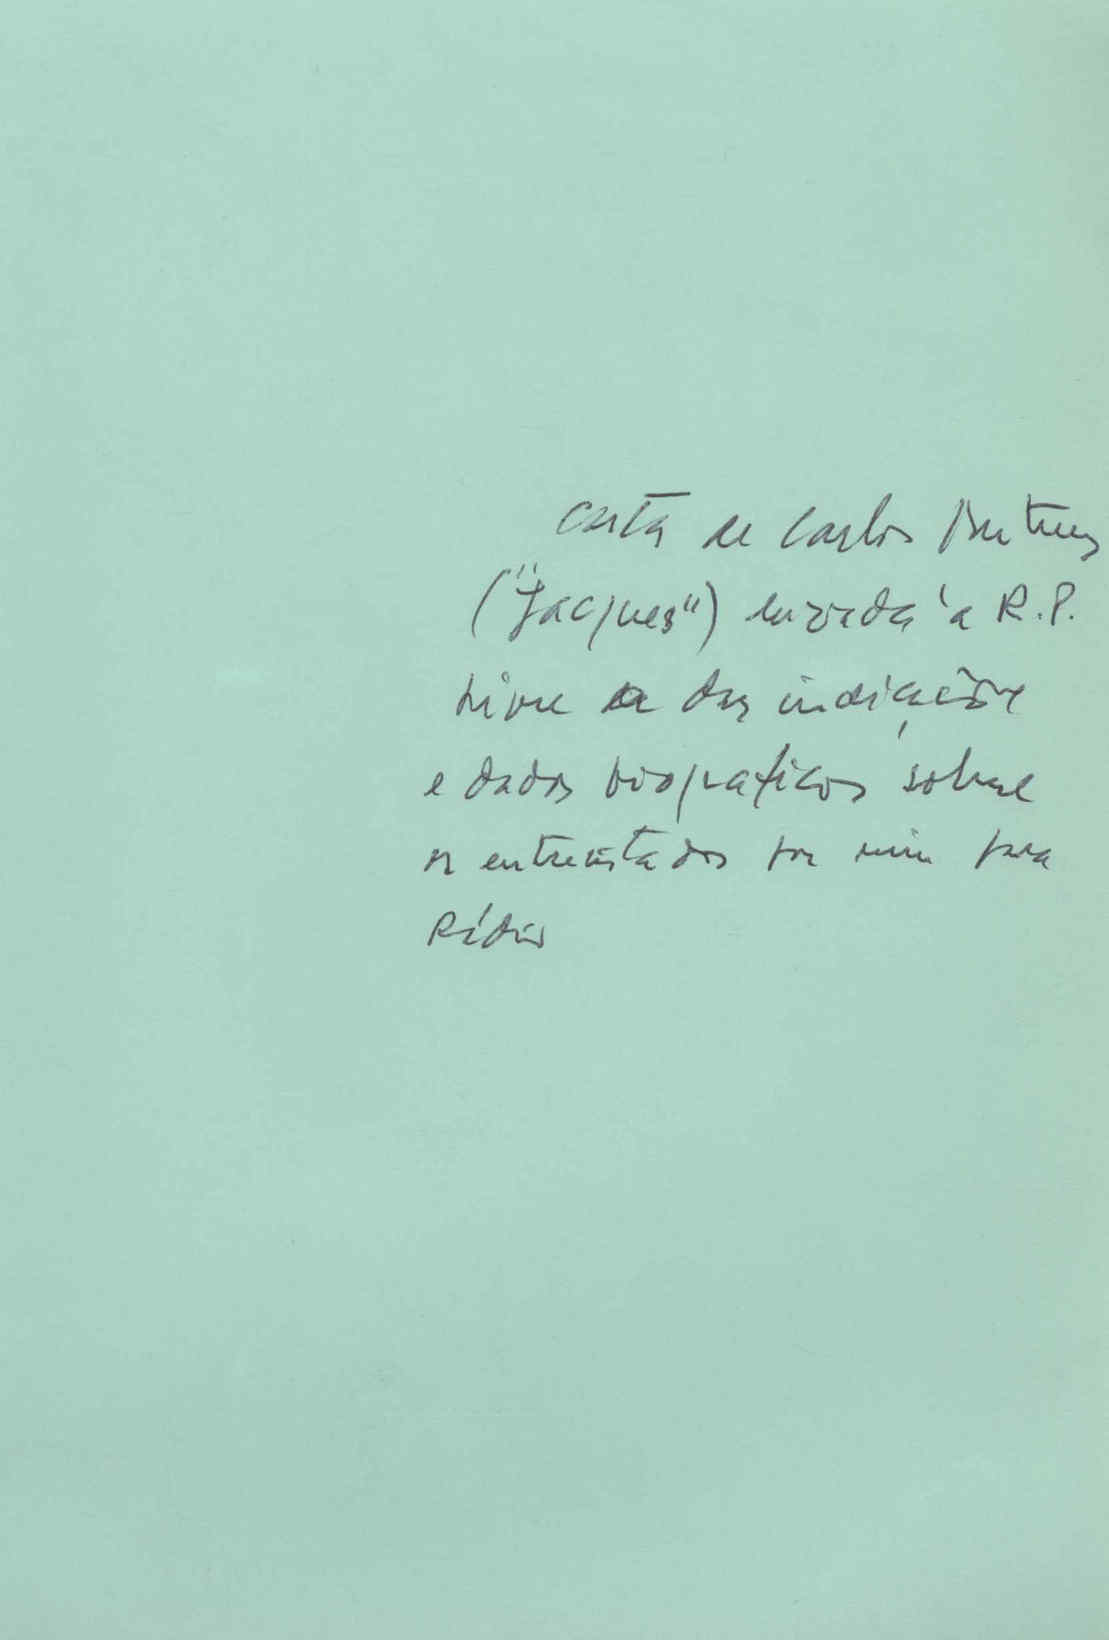 Carta de Carlos Antunes
("Jacques") enviada à R.P.
Livre a dar indicações
e dados biográficos sobre
os entrevistados por mim para
Rádio